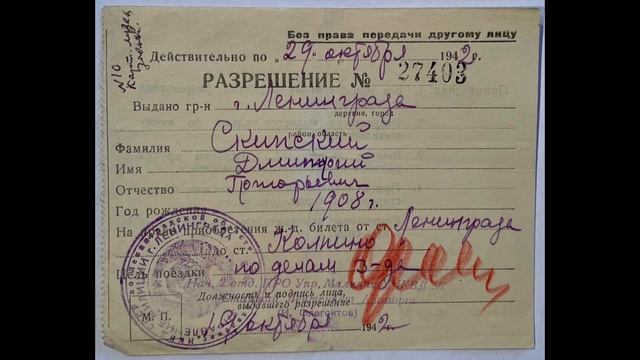 Без права передачи другому лицу
Действительно по „29" октября 1942г.
РАЗРЕШЕНИЕ № 27403
Выдано гр-н г. Ленинграда
деревня, город
район область
Фамилия Скипский
Имя Дмитрий
Отчество
Год рождения 1908 г.
На приобретения ж.-д. билета от ст. Ленинграда
до ст. Колпино
Цель поездки по делам з-да
Нач. 2 отд. ПРО Упр. Милиции НКВД
Должность и подпись лица,
выдавшего разрешение
М. П. октября 1942 г.